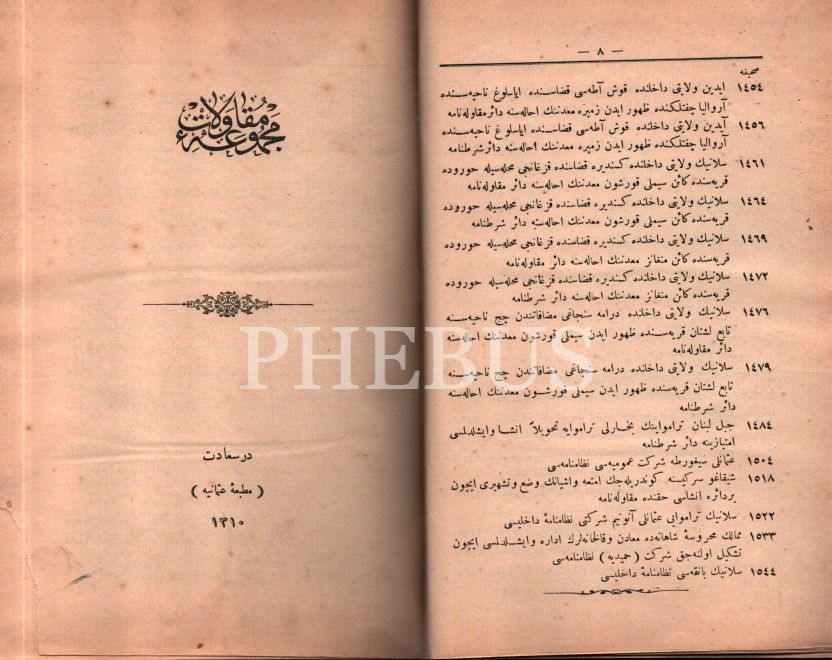 مجموعهٔ مقاولات
در سعادت
( مطبعهٔ عثمانیه )
١٣١٠
— ٨ —
صحیفه
١٤٥٤ ایدین ولایتی داخلنده قوش آطه‌سی قضاسنده ایاسلوغ ناحیه‌سنده
آروالیا چفتلکنده ظهور ایدن زمپره معدننك احاله‌سنه دائر مقاوله‌نامه
١٤٥٦ آیدین ولایتی داخلنده قوش آطه‌سی قضاسنده ایاسلوغ ناحیه‌سنده
آروالیا چفتلکنده ظهور ایدن زمپره معدننك احاله‌سنه دائر شرطنامه
١٤٦١ سلانیك ولایتی داخلنده کسندیره قضاسنده قزغانجی محله‌سیله حوروده
قریه‌سنده کائن سیملی قورشون معدننك احاله‌سنه دائر مقاوله‌نامه
١٤٦٤ سلانیك ولایتی داخلنده کسندیره قضاسنده قزغانجی محله‌سیله حوروده
قریه‌سنده کائن سیملی قورشون معدننك احاله‌سنه دائر شرطنامه
١٤٦٩ سلانیك ولایتی داخلنده کسندیره قضاسنده قزغانجی محله‌سیله حوروده
قریه‌سنده کائن منغانز معدننك احاله‌سنه دائر مقاوله‌نامه
١٤٧٢ سلانیك ولایتی داخلنده کسندیره قضاسنده قزغانجی محله‌سیله حوروده
قریه‌سنده کائن منغانز معدننك احاله‌سنه دائر شرطنامه
١٤٧٦ سلانیك ولایتی داخلنده درامه سنجاغی مضافاتندن چچ ناحیه‌سنه
تابع لشتان قریه‌سنده ظهور ایدن سیملی قورشون معدننك احاله‌سنه
دائر مقاوله‌نامه
١٤٧٩ سلانیك ولایتی داخلنده درامه سنجاغی مضافاتندن چچ ناحیه‌سنه
تابع لشتان قریه‌سنده ظهور ایدن سیملی قورشون معدننك احاله‌سنه
دائر شرطنامه
١٤٨٤ جبل لبنان تراموایینك بخارلی تراموایه تحویلاً انشا وایشلدلمسی
امتیازینه دائر شرطنامه
١٥٠٤ عثمانلی سیغورطه شرکت عمومیه‌سی نظامنامه‌سی
١٥١٨ شیقاغو سرکیسنه کوندریله‌جك امتعه واشیانك وضع وتشهیری ایچون
بردائره انشاسی حقنده مقاوله‌نامه
١٥٢٢ سلانیك تراموایی عثمانلی آنونیم شرکتی نظامنامهٔ داخلیسی
١٥٣٣ ممالك محروسهٔ شاهانه‌ده معادن وقالخانه‌لرك اداره وایشلدلمسی ایچون
تشکیل اولنه‌جق شرکت ( حمیدیه ) نظامنامه‌سی
١٥٤٤ سلانیك بانقه‌سی نظامنامهٔ داخلیسی
PHEBUS